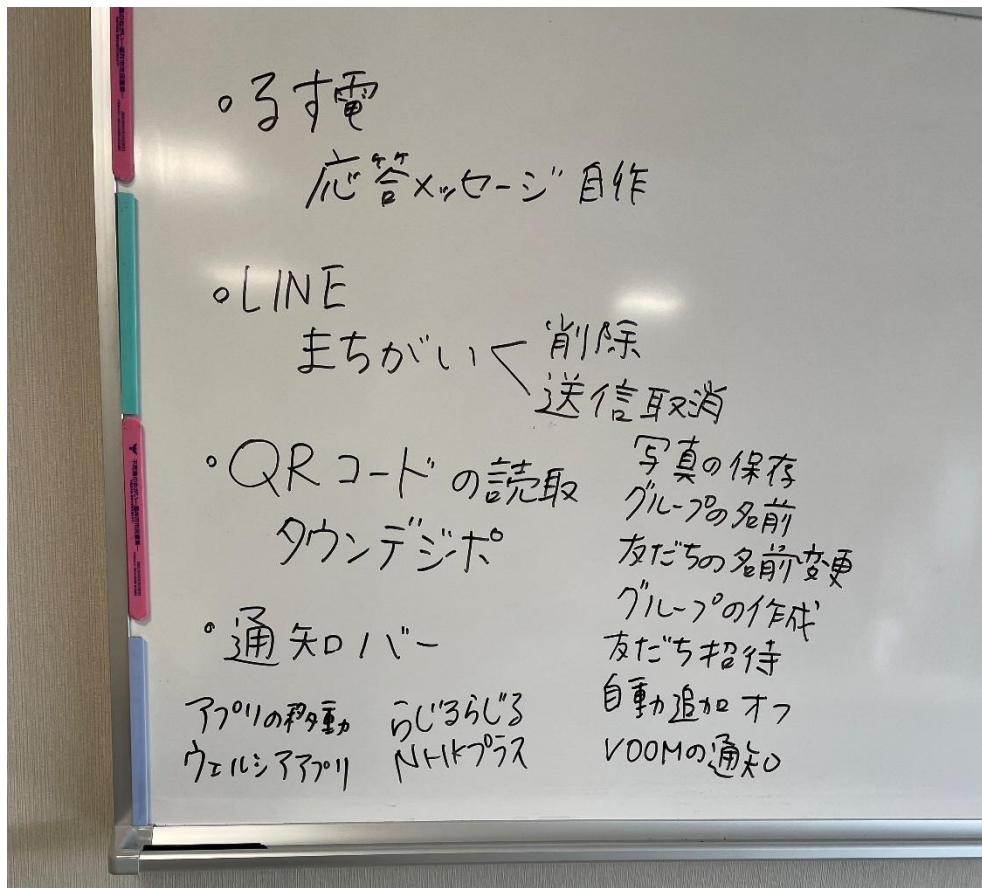 ・るす電
応答メッセージ自作
・LINE
まちがい
削除
送信取消
・QRコードの読取
タウンデジポ
・通知バー
アプリの移動 らじるらじる
ウェルシアアプリ NHKプラス
写真の保存
グループの名前
友だちの名前変更
グループの作成
友だち招待
自動追加オフ
VOOMの通知